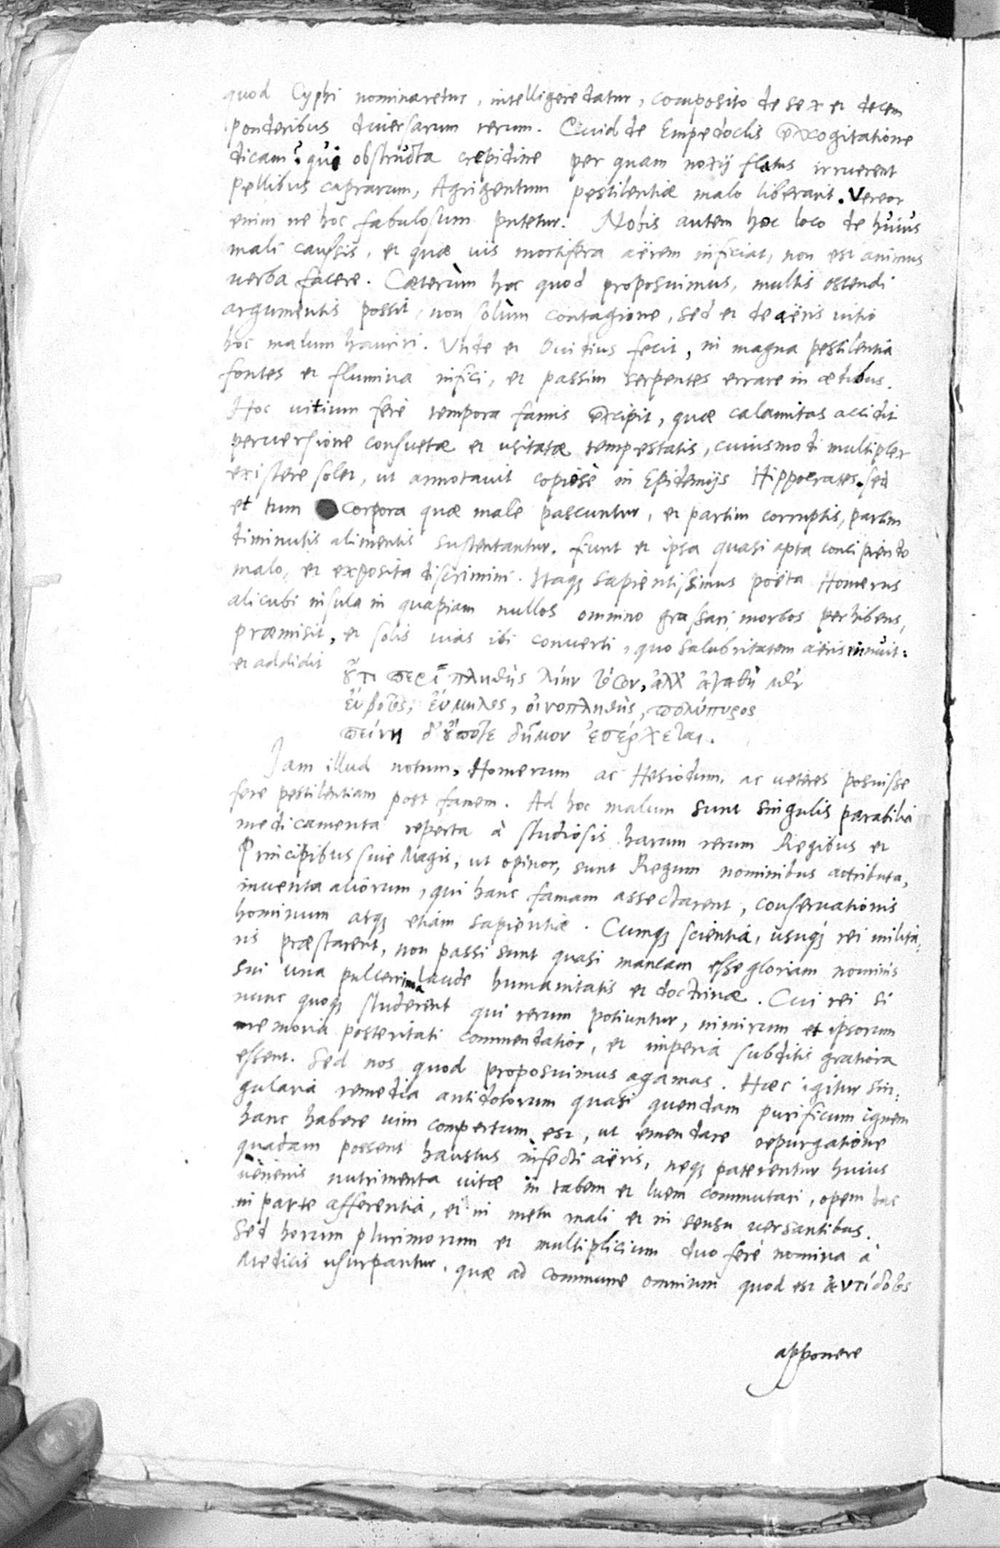 quod Cyphi nominaretur, intelligere datur, composito de sex et decem
ponderibus diversarum rerum. Quid de Empedoclis excogitatione
dicam? qui obstructa crepidine per quam noxij flatus irruerent
pellibus caprarum, Agrigentum pestilentiæ malo liberavit. Vereor
enim ne hoc fabulosum putetur. Nobis autem hoc loco de huius
mali caussis, et quæ vis mortifera aërem inficiat, non est animus
verba facere. Cæterùm hoc quod proposuimus, multis ostendi
argumentis possit, non solùm contagione, sed et de aëris vitio
hoc malum hauriri. Unde et Ovidius fecit, in magna pestilentia
fontes et flumina infici, et passim serpentes errare in ædibus.
Hoc vitium ferè tempora famis excipit, quæ calamitas accidit
perversione consuetæ et usitatæ tempestatis, cuiusmodi multiplex
existere solet, ut annotavit copiosè in Epidemijs Hippocrates. sed
et tum corpora quæ male pascuntur, et partim corruptis, partim
diminutis alimentis sustentantur. fiunt et ipsa quasi apta concipiendo
malo, et exposita discrimini. Itaq; sapientissimus poëta Homerus
alicubi insula in quapiam nullos omnino grassari morbos perhibens,
præmisit, et solis vias ibi converti, quo salubritatem aëris innuit:
et addidit οὔτι περιπληθὴς λίην τόσον, ἀλλ' ἀγαθὴ μὲν
εὔβοτος, εὔμηλος, οἰνοπληθὴς, πολύπυρος
πείνη δ' οὔποτε δῆμον ἐσέρχεται.
Jam illud notum, Homerum ac Hesiodum, ac veteres posuisse
fere pestilentiam post famem. Ad hoc malum sunt singulis parabilia
medicamenta reperta à studiosis harum rerum Regibus et
Principibus sive Magis, ut opinor, sunt Regum nominibus attributa,
inventa aliorum, qui hanc famam assectarent, conservationis
hominum atq; etiam sapientiæ. Cumq; scientia, usuq; rei milita-
ris præstarent, non passi sunt quasi mancam esse gloriam nominis
sui una pulcerrima laude humanitatis et doctrinæ. Cui rei si
nunc quoq; studerent qui rerum potiuntur, nimirum et ipsorum
memoria posteritati commendatior, et imperia subditis gratiora
essent. Sed nos quod proposuimus agamus. Hæc igitur sin-
gularia remedia antidotorum quasi quendam purificum ignem
hanc habere vim compertum est, ut emendare repurgatione
quadam possent haustus infecti aëris, neq; paterentur huius
venenis nutrimenta vitæ in tabem et luem commutari, opem hac
in parte afferentia, et in metu mali et in sensu versantibus.
Sed horum plurimorum et multiplicium duo ferè nomina à
Medicis usurpantur, quæ ad commune omnium quod est ἀντίδοτος
apponere